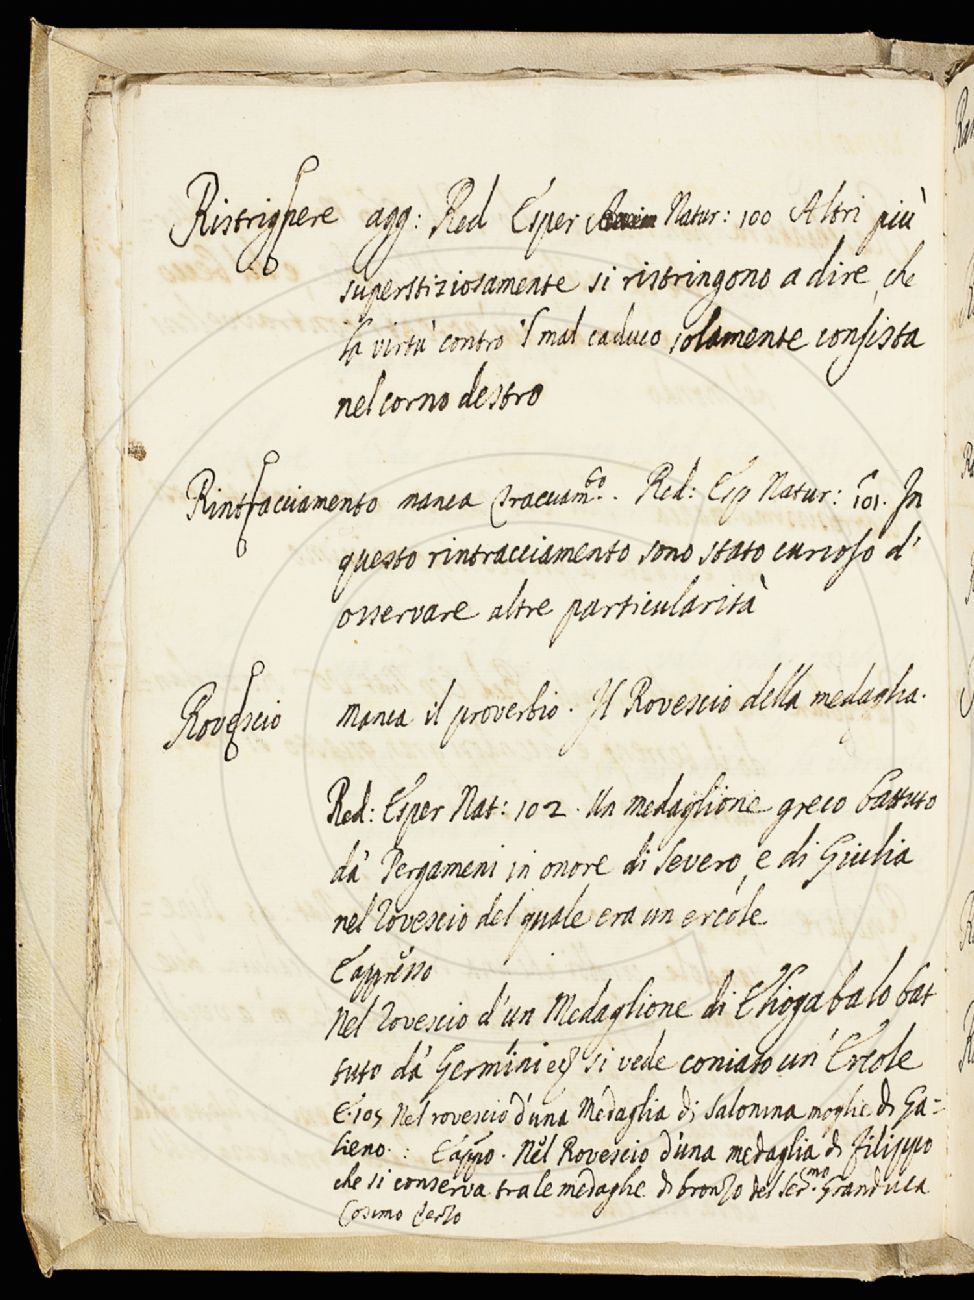 Ristrignere agg: Red Esper Natur: 100 Altri più
superstiziosamente si ristringono a dire, che
la virtù contro 'l mal caduco solamente consista
nel corno destro
Rintracciamento manca Tracciam.to. Red: Esp Natur: 101. In
questo rintracciamento sono stato curioso d'
osservare altre particularità
Rovescio manca il proverbio. Il Rovescio della medaglia.
Red: Esper Nat: 102. Un medaglione greco battuto
dà Pergameni in onore di Severo, e di Giulia
nel Rovescio del quale era un ercole
E appresso
Nel Rovescio d'un Medaglione di Eliogabalo bat
tuto dà Germini eq si vede coniato un' Ercole
E 105 Nel rovescio d'una Medaglia di Salonina moglie di Ga=
lieno. : E appo. Nel Rovescio d'una medaglia di Filippo
che si conserva tra le medaglie di bronzo del Ser.mo Granduca
Cosimo Terzo